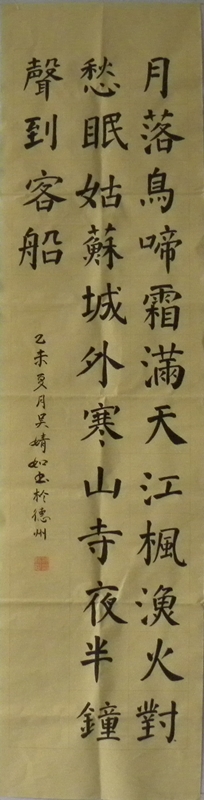 月落鳥啼霜滿天江楓漁火對
愁眠姑蘇城外寒山寺夜半鐘
聲到客船
乙未夏月吴婧如书於德州